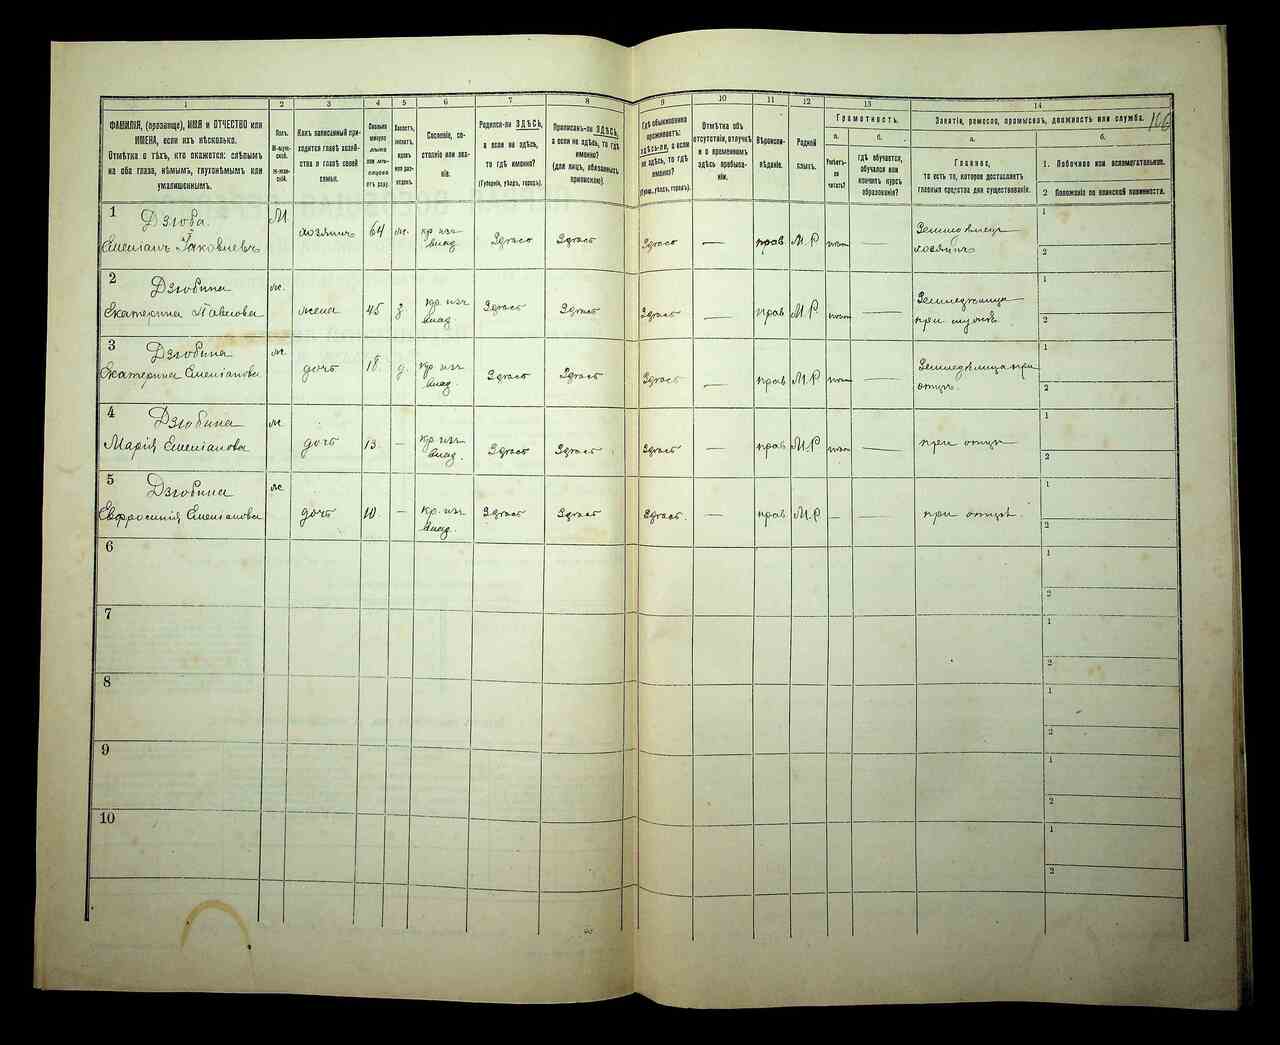 1 2 3 4 5 6 7 8 9 10 11 12 13 14
ФАМИЛІЯ, (прозвище), ИМЯ и ОТЧЕСТВО или
ИМЕНА, если ихъ нѣсколько.
Отмѣтка о тѣхъ, кто окажется: слѣпымъ
на оба глаза, нѣмымъ, глухонѣмымъ или
умалишеннымъ.
Полъ.
М-муж-
ской.
Ж-жен-
скій.
Какъ записанный при-
ходится главѣ хозяй-
ства и главѣ своей
семьи.
Сколько
минуло
лѣтъ
или мѣ-
сяцевъ
отъ роду.
Холостъ,
женатъ,
вдовъ
или раз-
веденъ.
Сословіе, со-
стояніе или зва-
ніе.
Родился-ли ЗДѢСЬ,
а если не здѣсь,
то гдѣ именно?
(Губернія, уѣздъ, городъ).
Приписанъ-ли ЗДѢСЬ,
а если не здѣсь, то гдѣ
именно?
(для лицъ, обязанныхъ
припискою).
Гдѣ обыкновенно
проживаетъ:
здѣсь-ли, а если
не здѣсь, то гдѣ
именно?
(Губер., уѣздъ, городъ).
Отмѣтка объ
отсутствіи, отлучкѣ
и о временномъ
здѣсь пребыва-
ніи.
Вѣроиспо-
вѣданіе.
Родной
языкъ.
Грамотность.
а.
Умѣетъ-
ли
читать?
б.
гдѣ обучается,
обучался или
кончилъ курсъ
образованія?
Занятіе, ремесло, промыселъ, должность или служба.
а.
Главное,
то есть то, которое доставляетъ
главныя средства для существованія.
б.
1. Побочное или вспомогательное.
2 Положеніе по воинской повинности.
1 Дзюба М 1
Емеліанъ Іаковлевъ хозяинъ 64 ж. кр. изъ Здѣсь Здѣсь Здѣсь — прав М.Р —
хозяинъ 2
2 Дзюбина ж. 1
Екатерина Павлова жена 45 з. кр. изъ Здѣсь Здѣсь Здѣсь — прав М.Р —
при мужѣ 2
3 Дзюбина ж. 1
Екатерина Емеліанова дочь 18 д. кр. изъ Здѣсь Здѣсь Здѣсь — прав М.Р — при
отцѣ. 2
4 Дзюбина ж 1
Марія Емеліанова дочь 13 — кр. изъ Здѣсь Здѣсь Здѣсь — прав М.Р — при отцѣ
2
5 Дзюбина ж 1
Евфросинія Емеліанова дочь 10 — кр. изъ Здѣсь Здѣсь Здѣсь. — прав М.Р — при отцѣ.
2
6 1
2
7 1
2
8 1
2
9 1
2
10 1
2